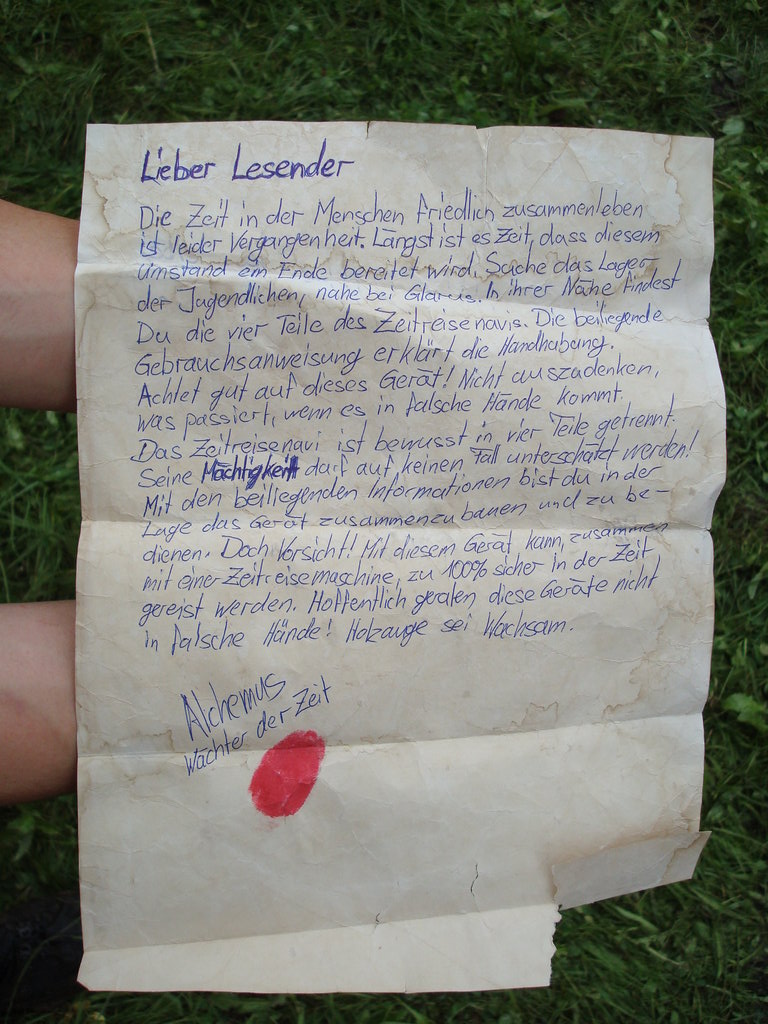 Lieber Lesender
Die Zeit in der Menschen friedlich zusammenleben
ist leider Vergangenheit. Längst ist es Zeit, dass diesem
Umstand ein Ende bereitet wird. Suche das Lager
der Jugendlichen, nahe bei Glarus. In ihrer Nähe findest
Du die vier Teile des Zeitreisenavis. Die beiliegende
Gebrauchsanweisung erklärt die Handhabung.
Achtet gut auf dieses Gerät! Nicht auszudenken,
was passiert, wenn es in falsche Hände kommt.
Das Zeitreisenavi ist bewusst in vier Teile getrennt.
Seine Mächtigkeit darf auf keinen Fall unterschätzt werden!
Mit den beiliegenden Informationen bist du in der
Lage das Gerät zusammenzubauen und zu be-
dienen. Doch Vorsicht! Mit diesem Gerät, kann, zusammen
mit einer Zeitreisemaschine, zu 100% sicher in der Zeit
gereist werden. Hoffentlich geraten diese Geräte nicht
in falsche Hände! Holzauge sei Wachsam.
Alchemus
Wächter der Zeit